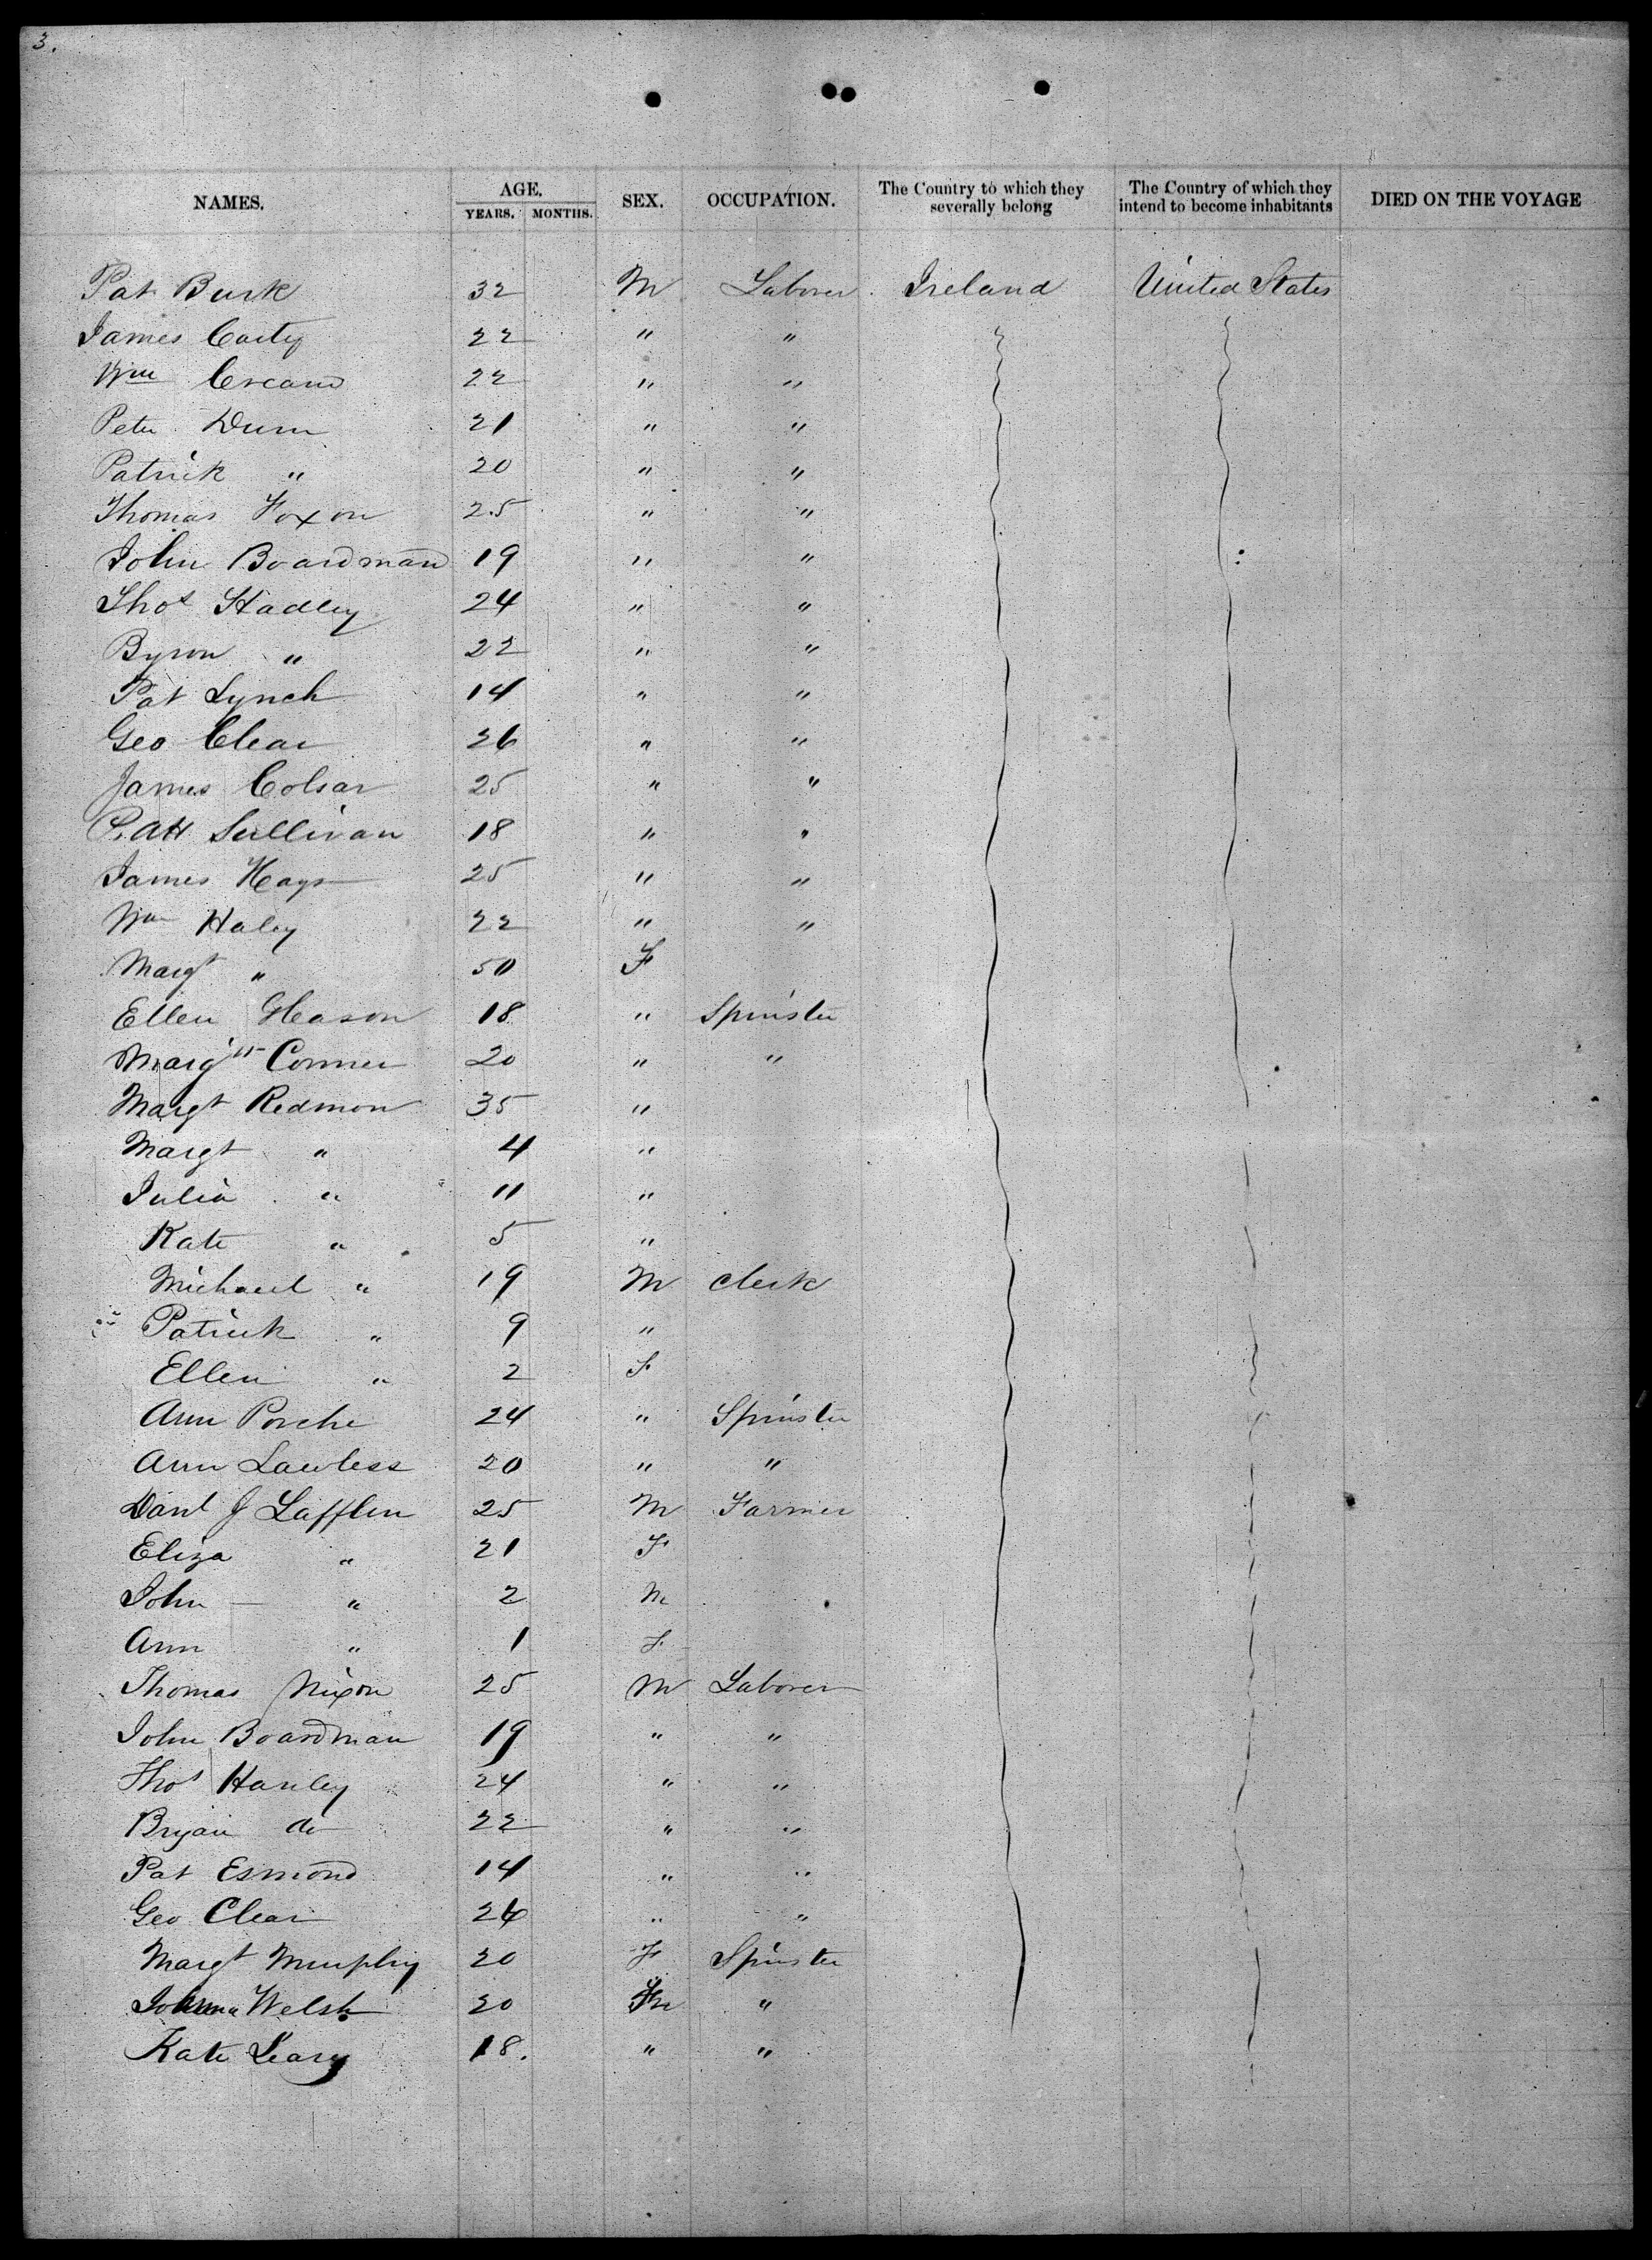 3.
NAMES. AGE. YEARS. MONTHS. SEX. OCCUPATION. The Country to which they severally belong The Country of which they intend to become inhabitants DIED ON THE VOYAGE
Pat Burk 32 M Laborer Ireland United States
James Carty 22 " "
Wm 22 " "
Peter Dunn 21 " "
Patrick " 20 " "
Thomas Foxon 25 " "
John Boardman 19 " "
Thos Hadley 24 " "
Byron " 22 " "
Pat Lynch 14 " "
Geo Clear 26 " "
James Colsar 25 " "
P. Att Sullivan 18 " "
James Hays 25 " "
Wm Haley 22 " "
Margt " 50 F
Ellen Gleason 18 " Spinster
Margt Conner 20 " "
Margt Redmon 35 "
Margt " 4 "
Julia " 11 "
Kate " 5 "
Michael " 19 M Clerk
Patrick " 9 "
Ellen " 2 F
Ann Porche 24 " Spinster
Ann Lawless 20 " "
Danl J Lafflin 25 M Farmer
Eliza " 21 F
John " 2 M
Ann " 1 F
Thomas Nixon 25 M Laborer
John Boardman 19 " "
Thos Hanley 24 " "
Bryan do 22 " "
Pat Esmond 14 " "
Geo Clear 26 " "
Margt Murphy 20 F Spinster
Johanna Welsh 20 "
Kate Leary 18. " "